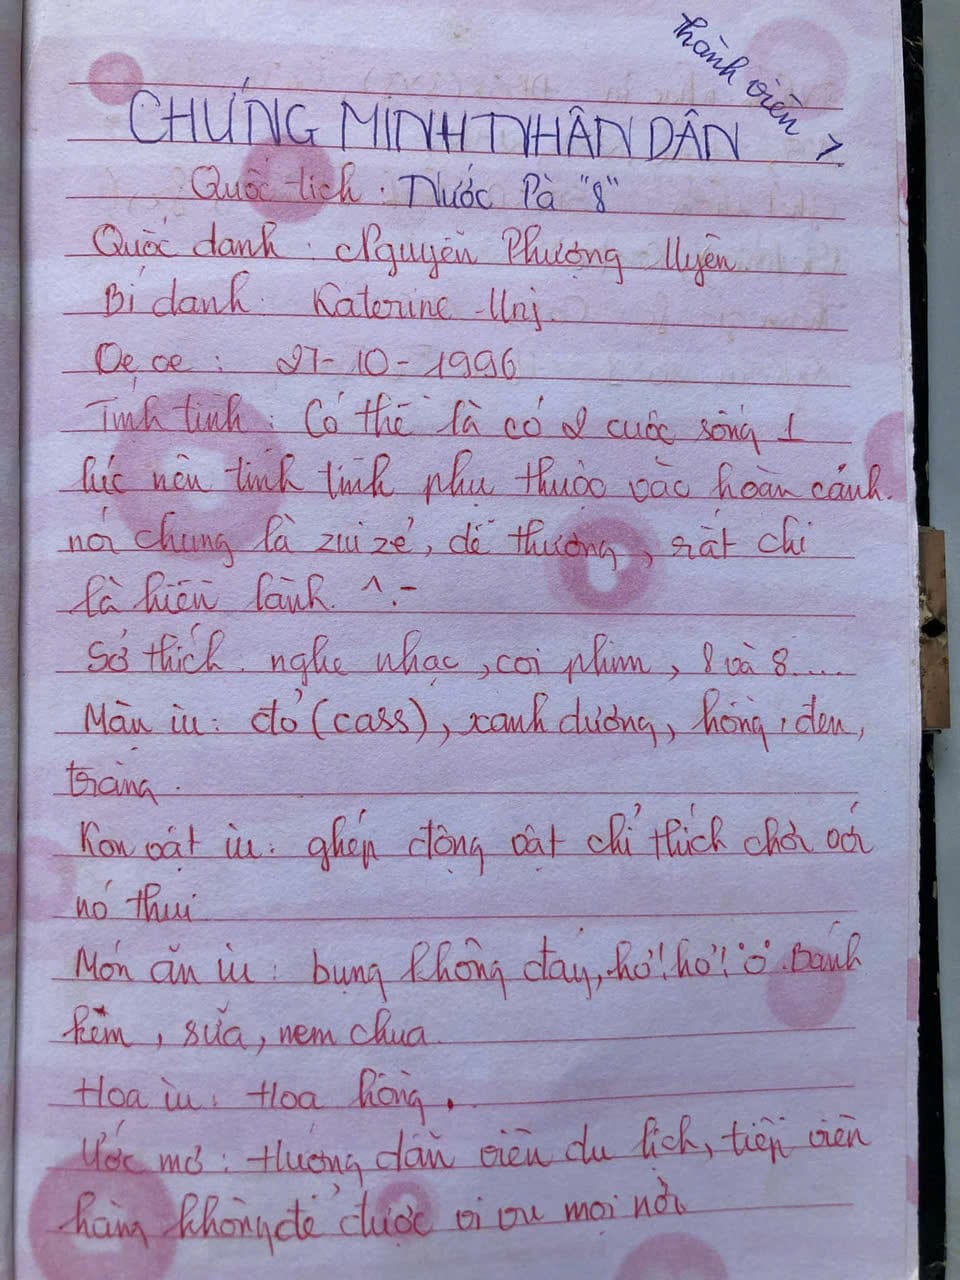 thành viên
CHỨNG MINH NHÂN DÂN >
Quốc tịch : Nước Pà "8"
Quốc danh : Nguyễn Phượng Uyên
Bí danh : Katerine Uni
Oe oe : 27-10-1996
Tính tình : Có thể là có 2 cuộc sống 1
lúc nên tính tình phụ thuộc vào hoàn cảnh.
nói chung là zui zẻ, dể thương, rất chi
là hiền lành. ^.-
Sở thích nghe nhạc, coi phim, 8 và 8....
Màn iu : đỏ (cass), xanh dương, hồng, đen,
trắng.
Kon vật iu : ghép động vật chỉ thích chơi với
nó thui
Món ăn iu : bụng không đáy, hơ! hơ! ở. Bánh
kem, sữa, nem chua.
Hoa iu : Hoa hồng.
Ước mơ : Hướng dẫn viên du lịch, tiếp viên
hàng không để được vi vu mọi nơi